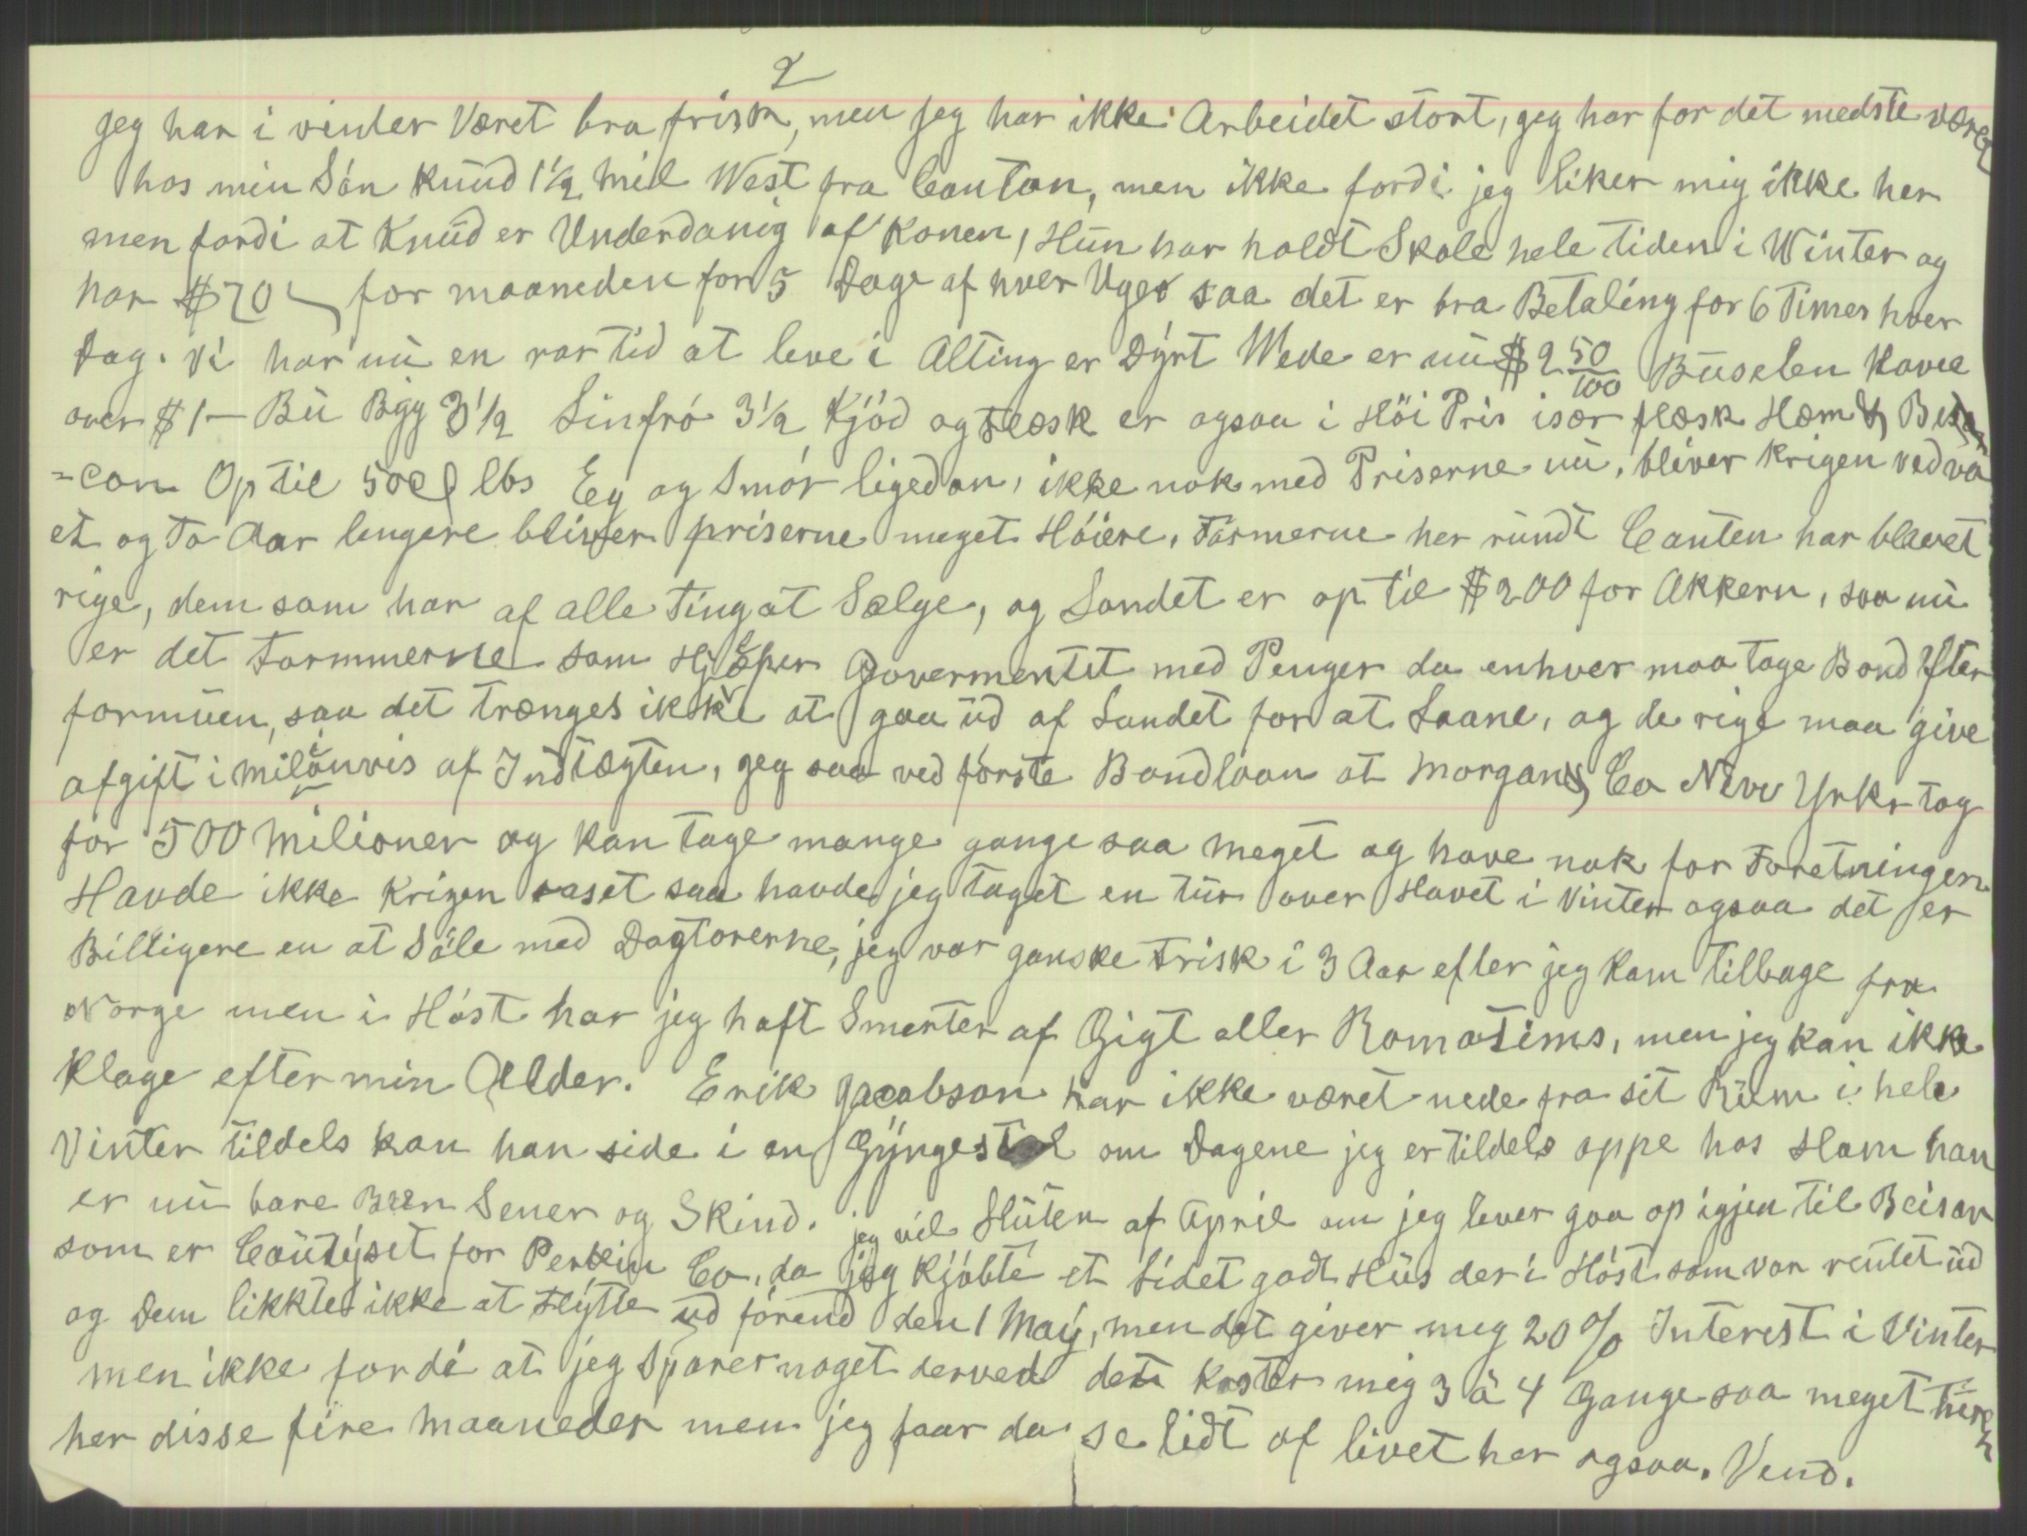 2
jeg har i vinter Været bra frisk, men jeg har ikke Arbeidet stort, jeg har for det medste været
hos min Sön Knud 1½ Mil West fra Canton, men ikke fordi jeg liker mig ikke her
men fordi at Knud er Underdanig af Konen, Hun har holdt Skole hele tiden i Winter og
har $70 for maaneden for 5 Dage af hver Uge saa det er bra Betaling for 6 Timer hver
Dag. Vi har nu en rar tid at leve i Alting er Dyrt Wede er nu $2 50/100 Buselen Havre
over $1— Bu Byg 3½ Linfrö 3½ Kjöd og Flæsk er ogsaa i Höi Pris især flæsk Hæm &
=con Op til 50c lbs Eg og Smör ligedan, ikke nok med Priserne nu, bliver Krigen ved va
et og To Aar lengere bliver priserne meget Höiere, Farmerne her rundt Canten har blevet
rige, dem som har af alle Ting at Sælge, og Landet er op til $200 for Akkern, saa nu
er det Farmmerne som Hjælper Govermentet med Penger da enhver maa tage Bond Efter
formuen, saa det trænges ikke at gaa ud af Landet for at Laane, og de rige maa give
afgift i milionvis af Indtægten, jeg saa ved förste Bondlaan at Morgan & Co New Yrk tog
for 500 Milioner og kan tage mange gange saa meget og have nok for Foretningen
Havde ikke Krigen raset saa havde jeg taget en tur over Havet i Vinter ogsaa det er
Billigere en at Söle med Dagtorerne, jeg var ganske Frisk i 3 Aar efter jeg kam tilbage fra
Norge men i Höst har jeg haft Smerter af Gigt eller Romatims, men jeg kan ikke
Klage efter min Alder. Erik Jacobson har ikke været nede fra sit Rum i hele
Vinter tildels kan han side i en Gyngestol om Dagene jeg er tildels oppe hos Ham han
er nu bare Been Sener og Skind. jeg vil Sluten af April om jeg lever gaa op igjen til Beisan
som er Coutyset for Perkin Co, da jeg Kjöbte et Lidet godt Hus der i Höst som var rentet ud
og Dem likkte ikke at Flytte ud förend den 1 May, men det giver mig 20% Interest i Vinter
men ikke fordi at jeg Sparer noget derved det koster mig 3 à 4 Gange saa meget
her disse fire Maaneder men jeg faar da se lidt af livet her ogsaa. Vend.